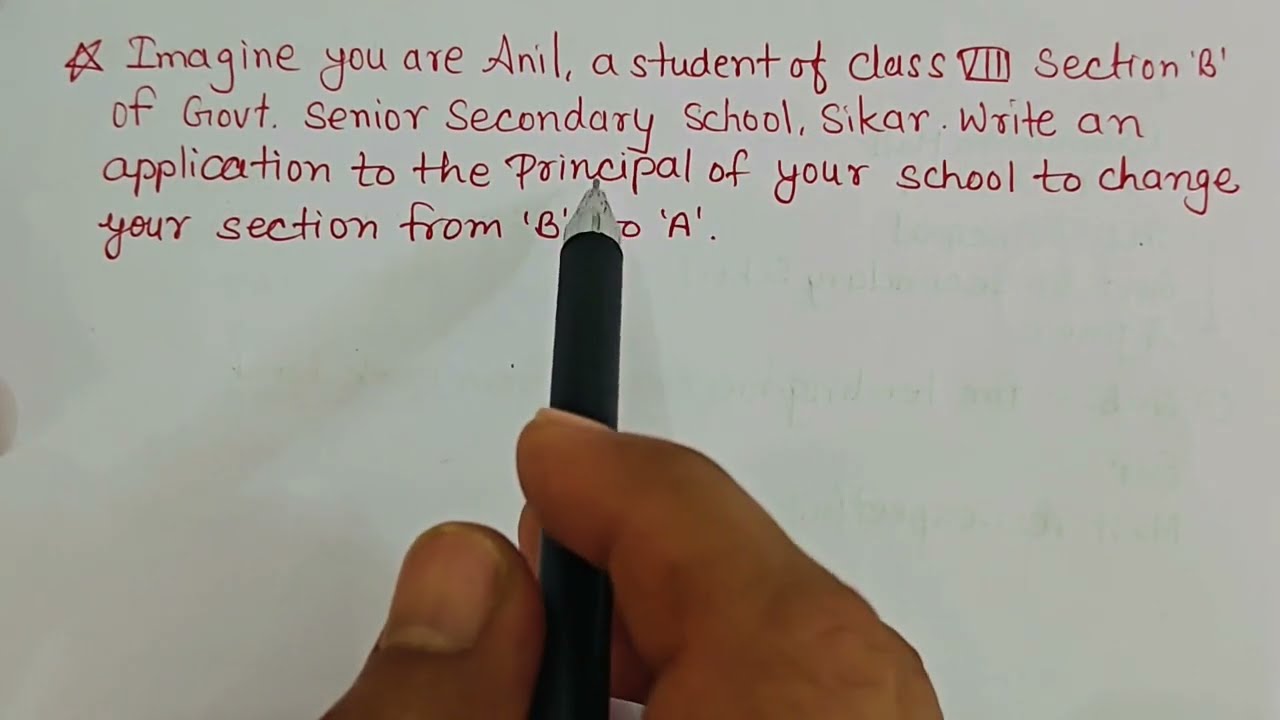 ☆ Imagine you are Anil, a student of class VIII Section 'B'
of Govt. Senior Secondary School, Sikar. Write an
application to the Principal of your school to change
your section from 'B' to 'A'.